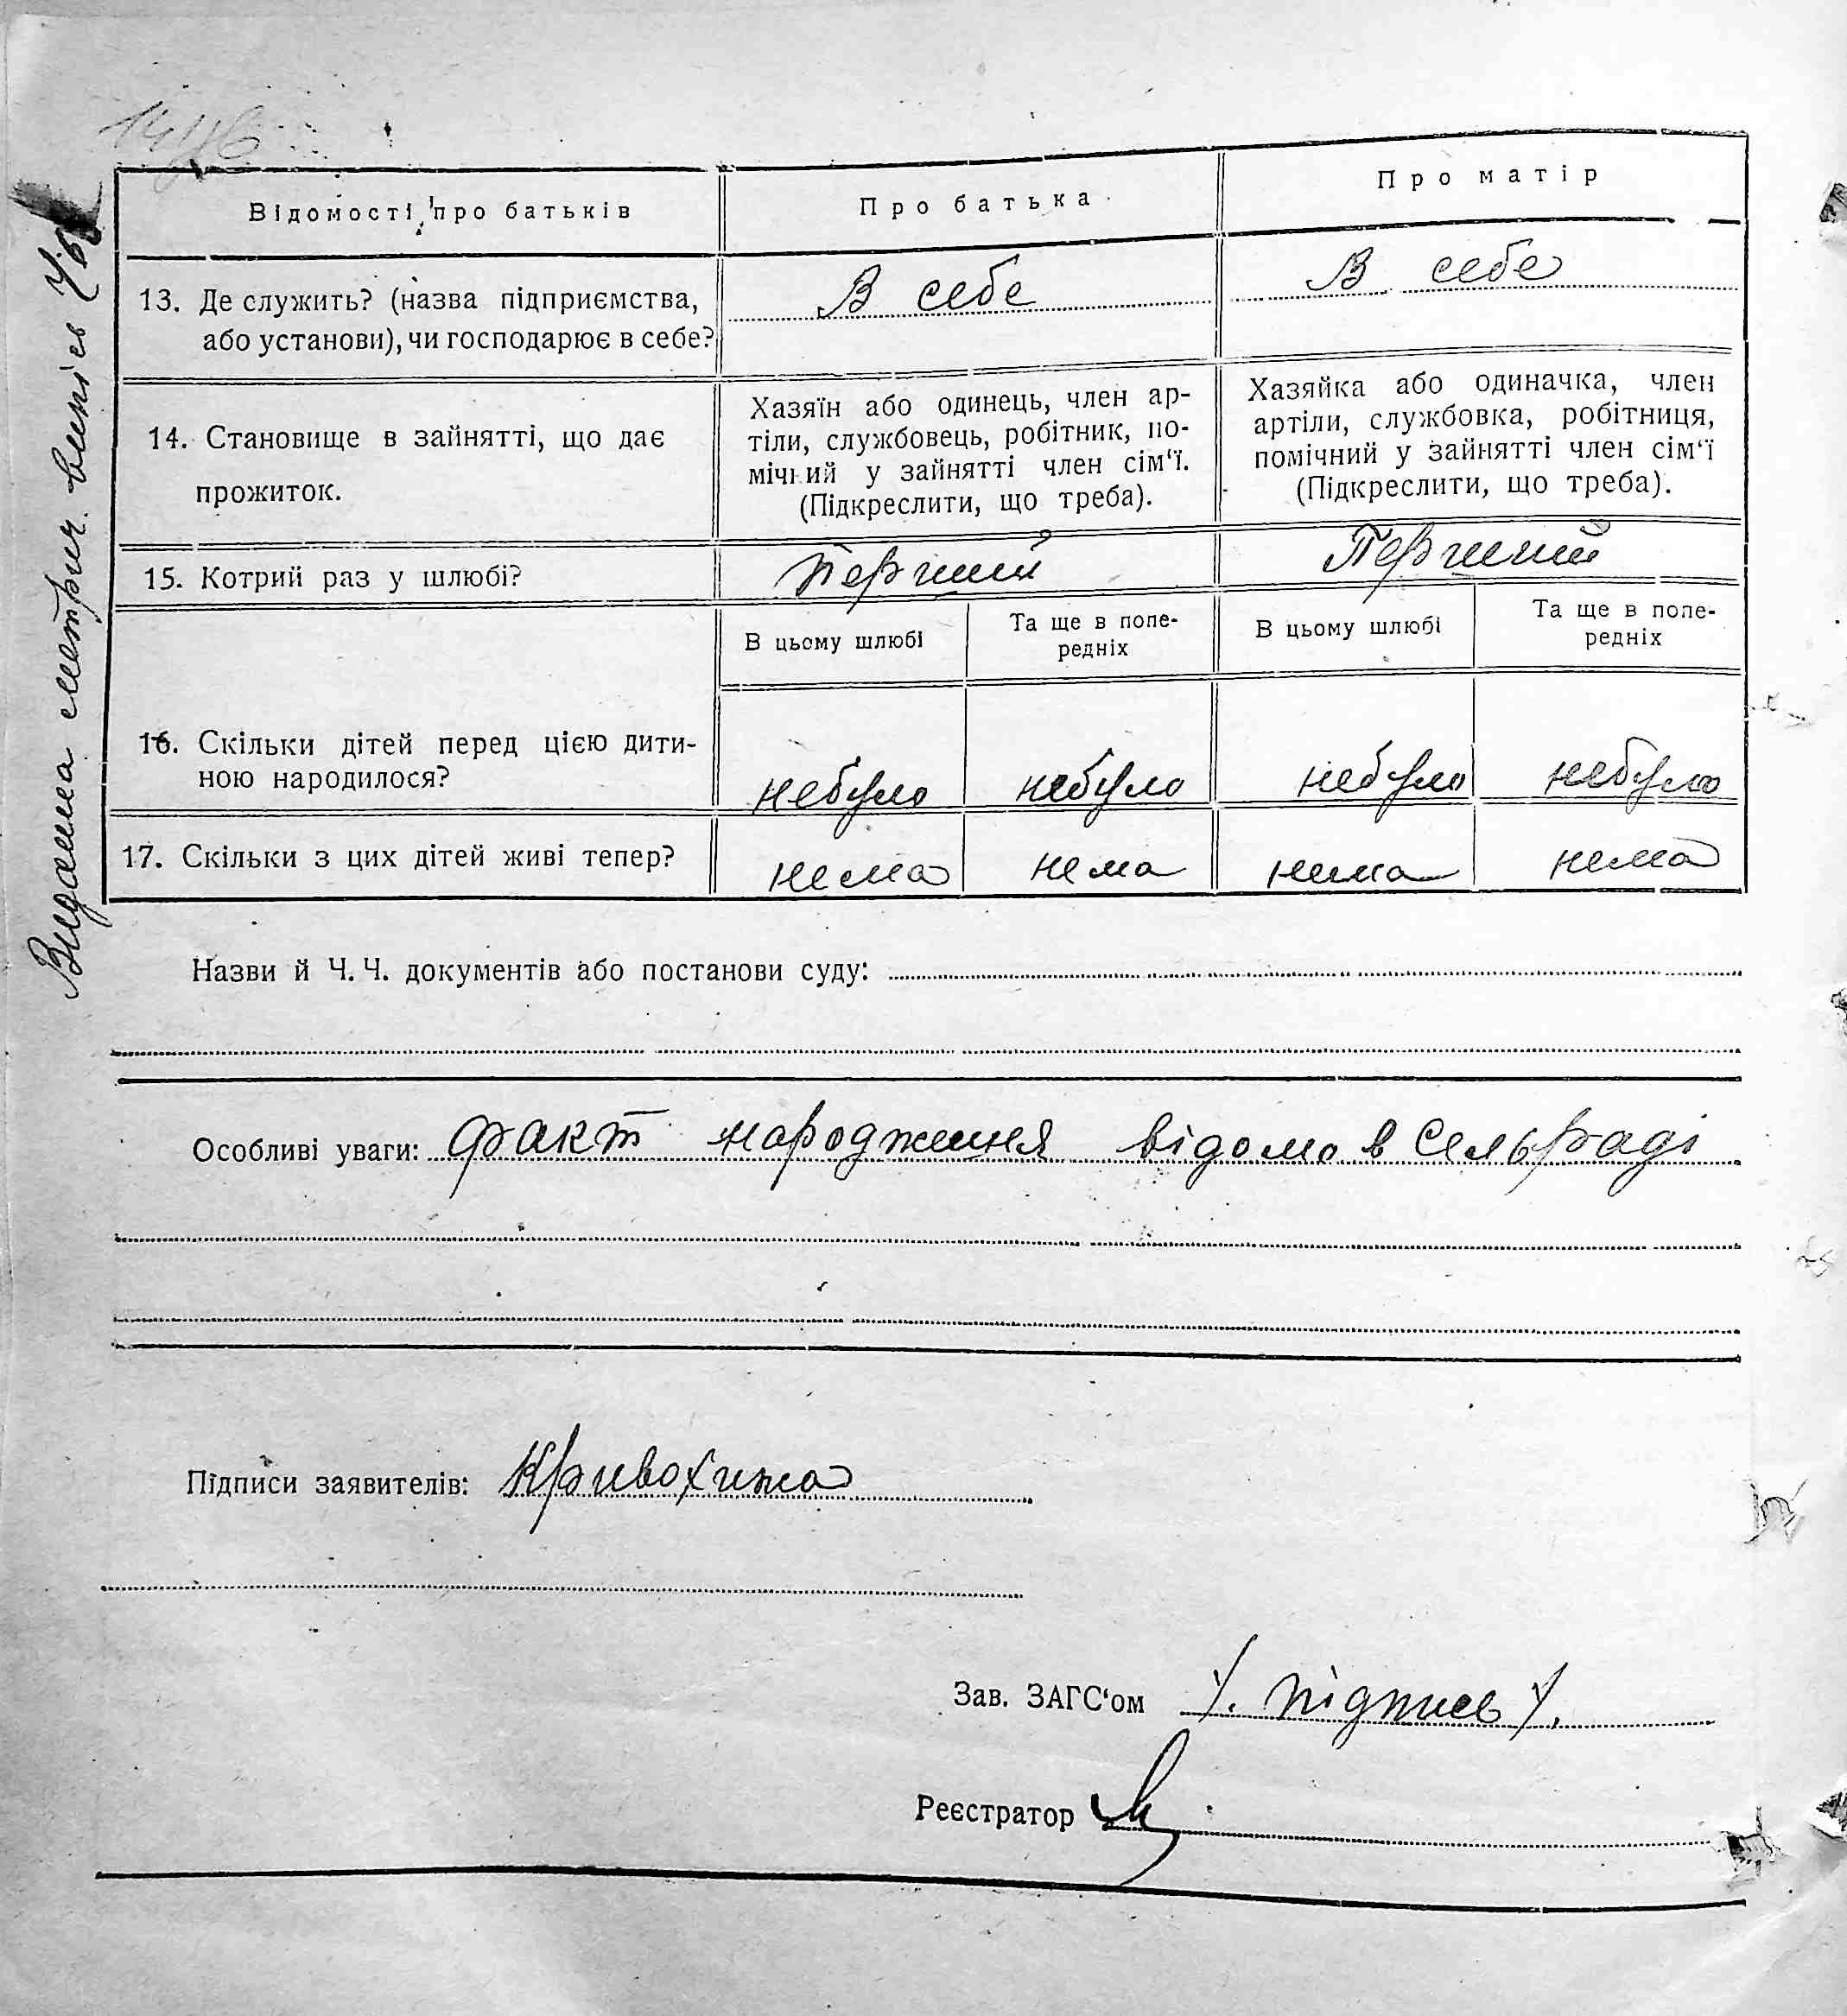 Відомості про батьків
Про батька
Про матір
13. Де служить? (назва підприємства,
або установи), чи господарює в себе?
В себе
В себе
14. Становище в зайнятті, що дає
прожиток.
Хазяїн або одинець, член ар-
тіли, службовець, робітник, по-
мічний у зайнятті член сім‘ї.
(Підкреслити, що треба).
Хазяйка або одиначка, член
артіли, службовка, робітниця,
помічний у зайнятті член сім‘ї
(Підкреслити, що треба).
15. Котрий раз у шлюбі?
Перший
Перший
В цьому шлюбі
Та ще в попе-
редніх
В цьому шлюбі
Та ще в попе-
редніх
16. Скільки дітей перед цією дити-
ною народилося?
небуло
небуло
небуло
небуло
17. Скільки з цих дітей живі тепер?
нема
нема
нема
нема
Видана метрич. випись
Назви й Ч. Ч. документів або постанови суду:
Особливі уваги: факт народження відомо в Сельраді
Підписи заявителів: Кривохижа
Зав. ЗАГС‘ом /. підпись /.
Реєстратор